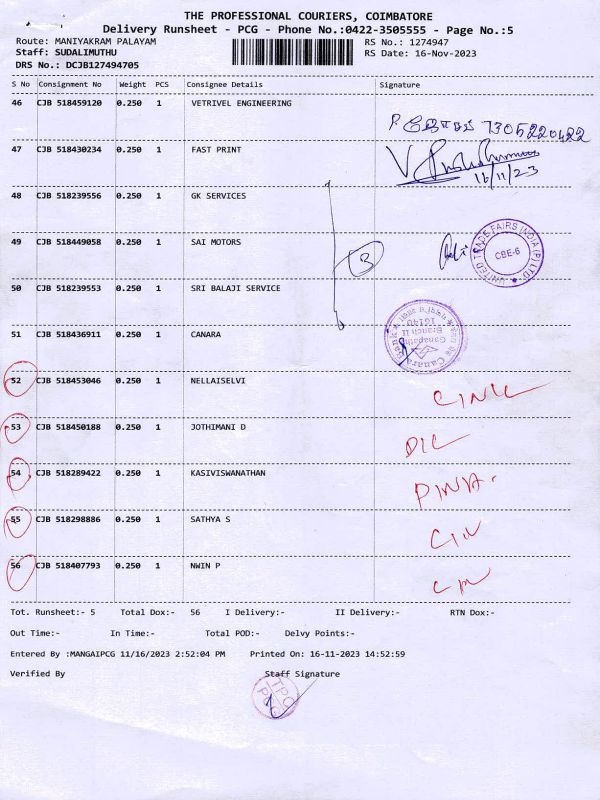 THE PROFESSIONAL COURIERS, COIMBATORE
Delivery Runsheet - PCG - Phone No.:0422-3505555 - Page No.:5
Route: MANIYAKRAM PALAYAM RS No.: 1274947
Staff: SUDALIMUTHU RS Date: 16-Nov-2023
DRS No.: DCJB127494705
S No Consignment No Weight PCS Consignee Details Signature
46 CJB 518459120 0.250 1 VETRIVEL ENGINEERING
7305220422
47 CJB 518430234 0.250 1 FAST PRINT
16/11/23
48 CJB 518239556 0.250 1 GK SERVICES
49 CJB 518449058 0.250 1 SAI MOTORS
UNITED TRADE FAIRS INDIA (P) LTD.
CBE-6
50 CJB 518239553 0.250 1 SRI BALAJI SERVICE
51 CJB 518436911 0.250 1 CANARA
Canara Bank
Branch II
16140
52 CJB 518453046 0.250 1 NELLAISELVI
53 CJB 518450188 0.250 1 JOTHIMANI D
DIL
54 CJB 518289422 0.250 1 KASIVISWANATHAN
55 CJB 518298886 0.250 1 SATHYA S
56 CJB 518407793 0.250 1 NWIN P
Tot. Runsheet:- 5 Total Dox:- 56 I Delivery:- II Delivery:- RTN Dox:-
Out Time:- In Time:- Total POD:- Delvy Points:-
Entered By :MANGAIPCG 11/16/2023 2:52:04 PM Printed On: 16-11-2023 14:52:59
Verified By Staff Signature
TPC